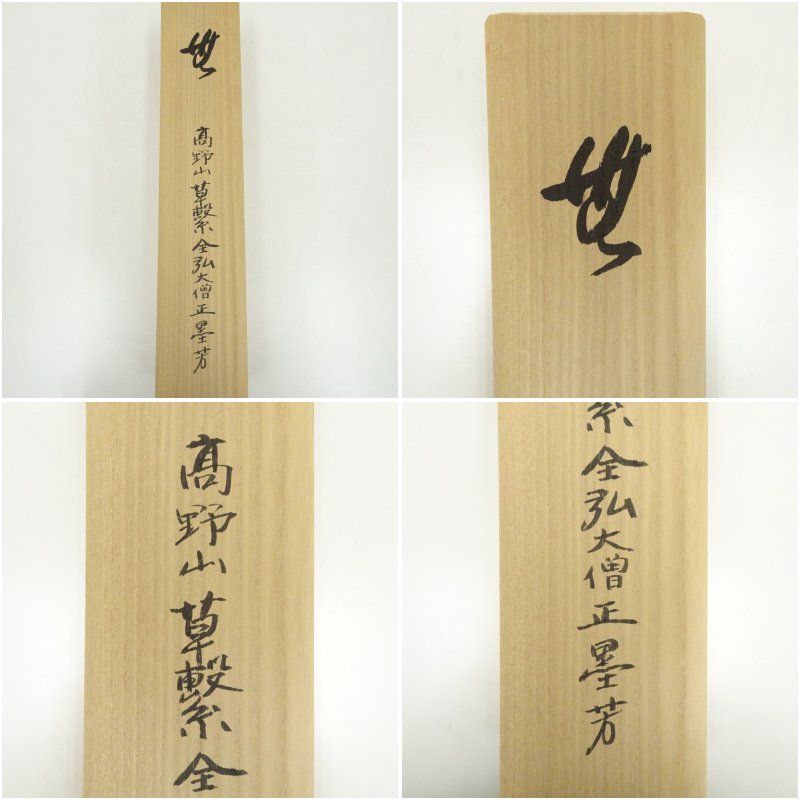 無
髙野山 草繋全弘大僧正墨芳
無
髙野山 草繋全
全弘大僧正墨芳